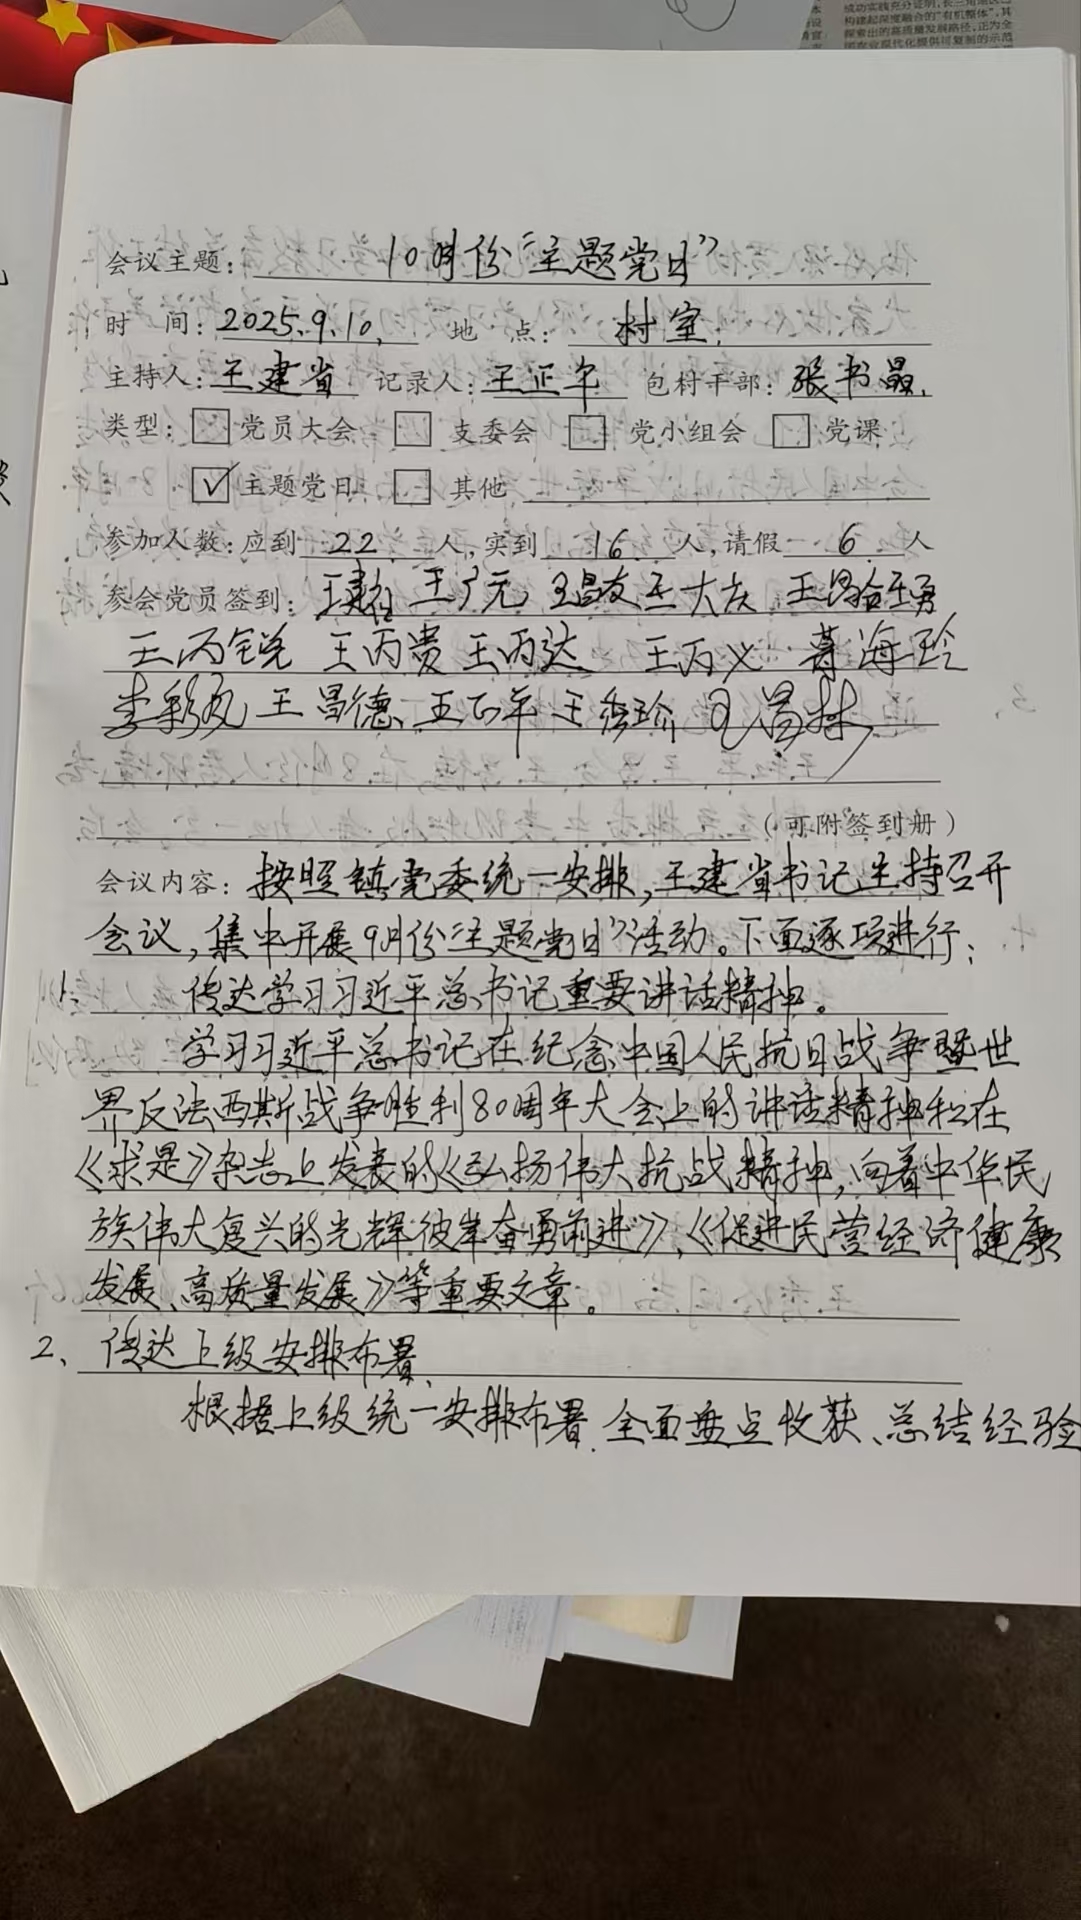 会议主题: 10月份“主题党日”
时 间: 2025.9.10. 地 点: 村室.
主持人: 王建省 记录人: 王正年 包村干部: 张书晶.
类型: □党员大会 □支委会 □党小组会 □党课
☑主题党日 □其他
参加人数: 应到 22 人, 实到 16 人, 请假 6 人
参会党员签到: 王广元 王昌友 王大庆
王丙锐 王丙贵 王丙达 王丙义 葛海玲
李彩凤 王昌德 王正年 王秀珍 王昌林
(可附签到册)
会议内容: 按照镇党委统一安排, 王建省书记主持召开
会议, 集中开展9月份“主题党日”活动。下面逐项进行:
1、传达学习习近平总书记重要讲话精神。
学习习近平总书记在纪念中国人民抗日战争暨世
界反法西斯战争胜利80周年大会上的讲话精神和在
《求是》杂志上发表的《弘扬伟大抗战精神, 向着中华民
族伟大复兴的光辉彼岸奋勇前进》,《促进民营经济健康
发展、高质量发展》等重要文章。
2、传达上级安排布署.
根据上级统一安排布署. 全面盘点收获、总结经验